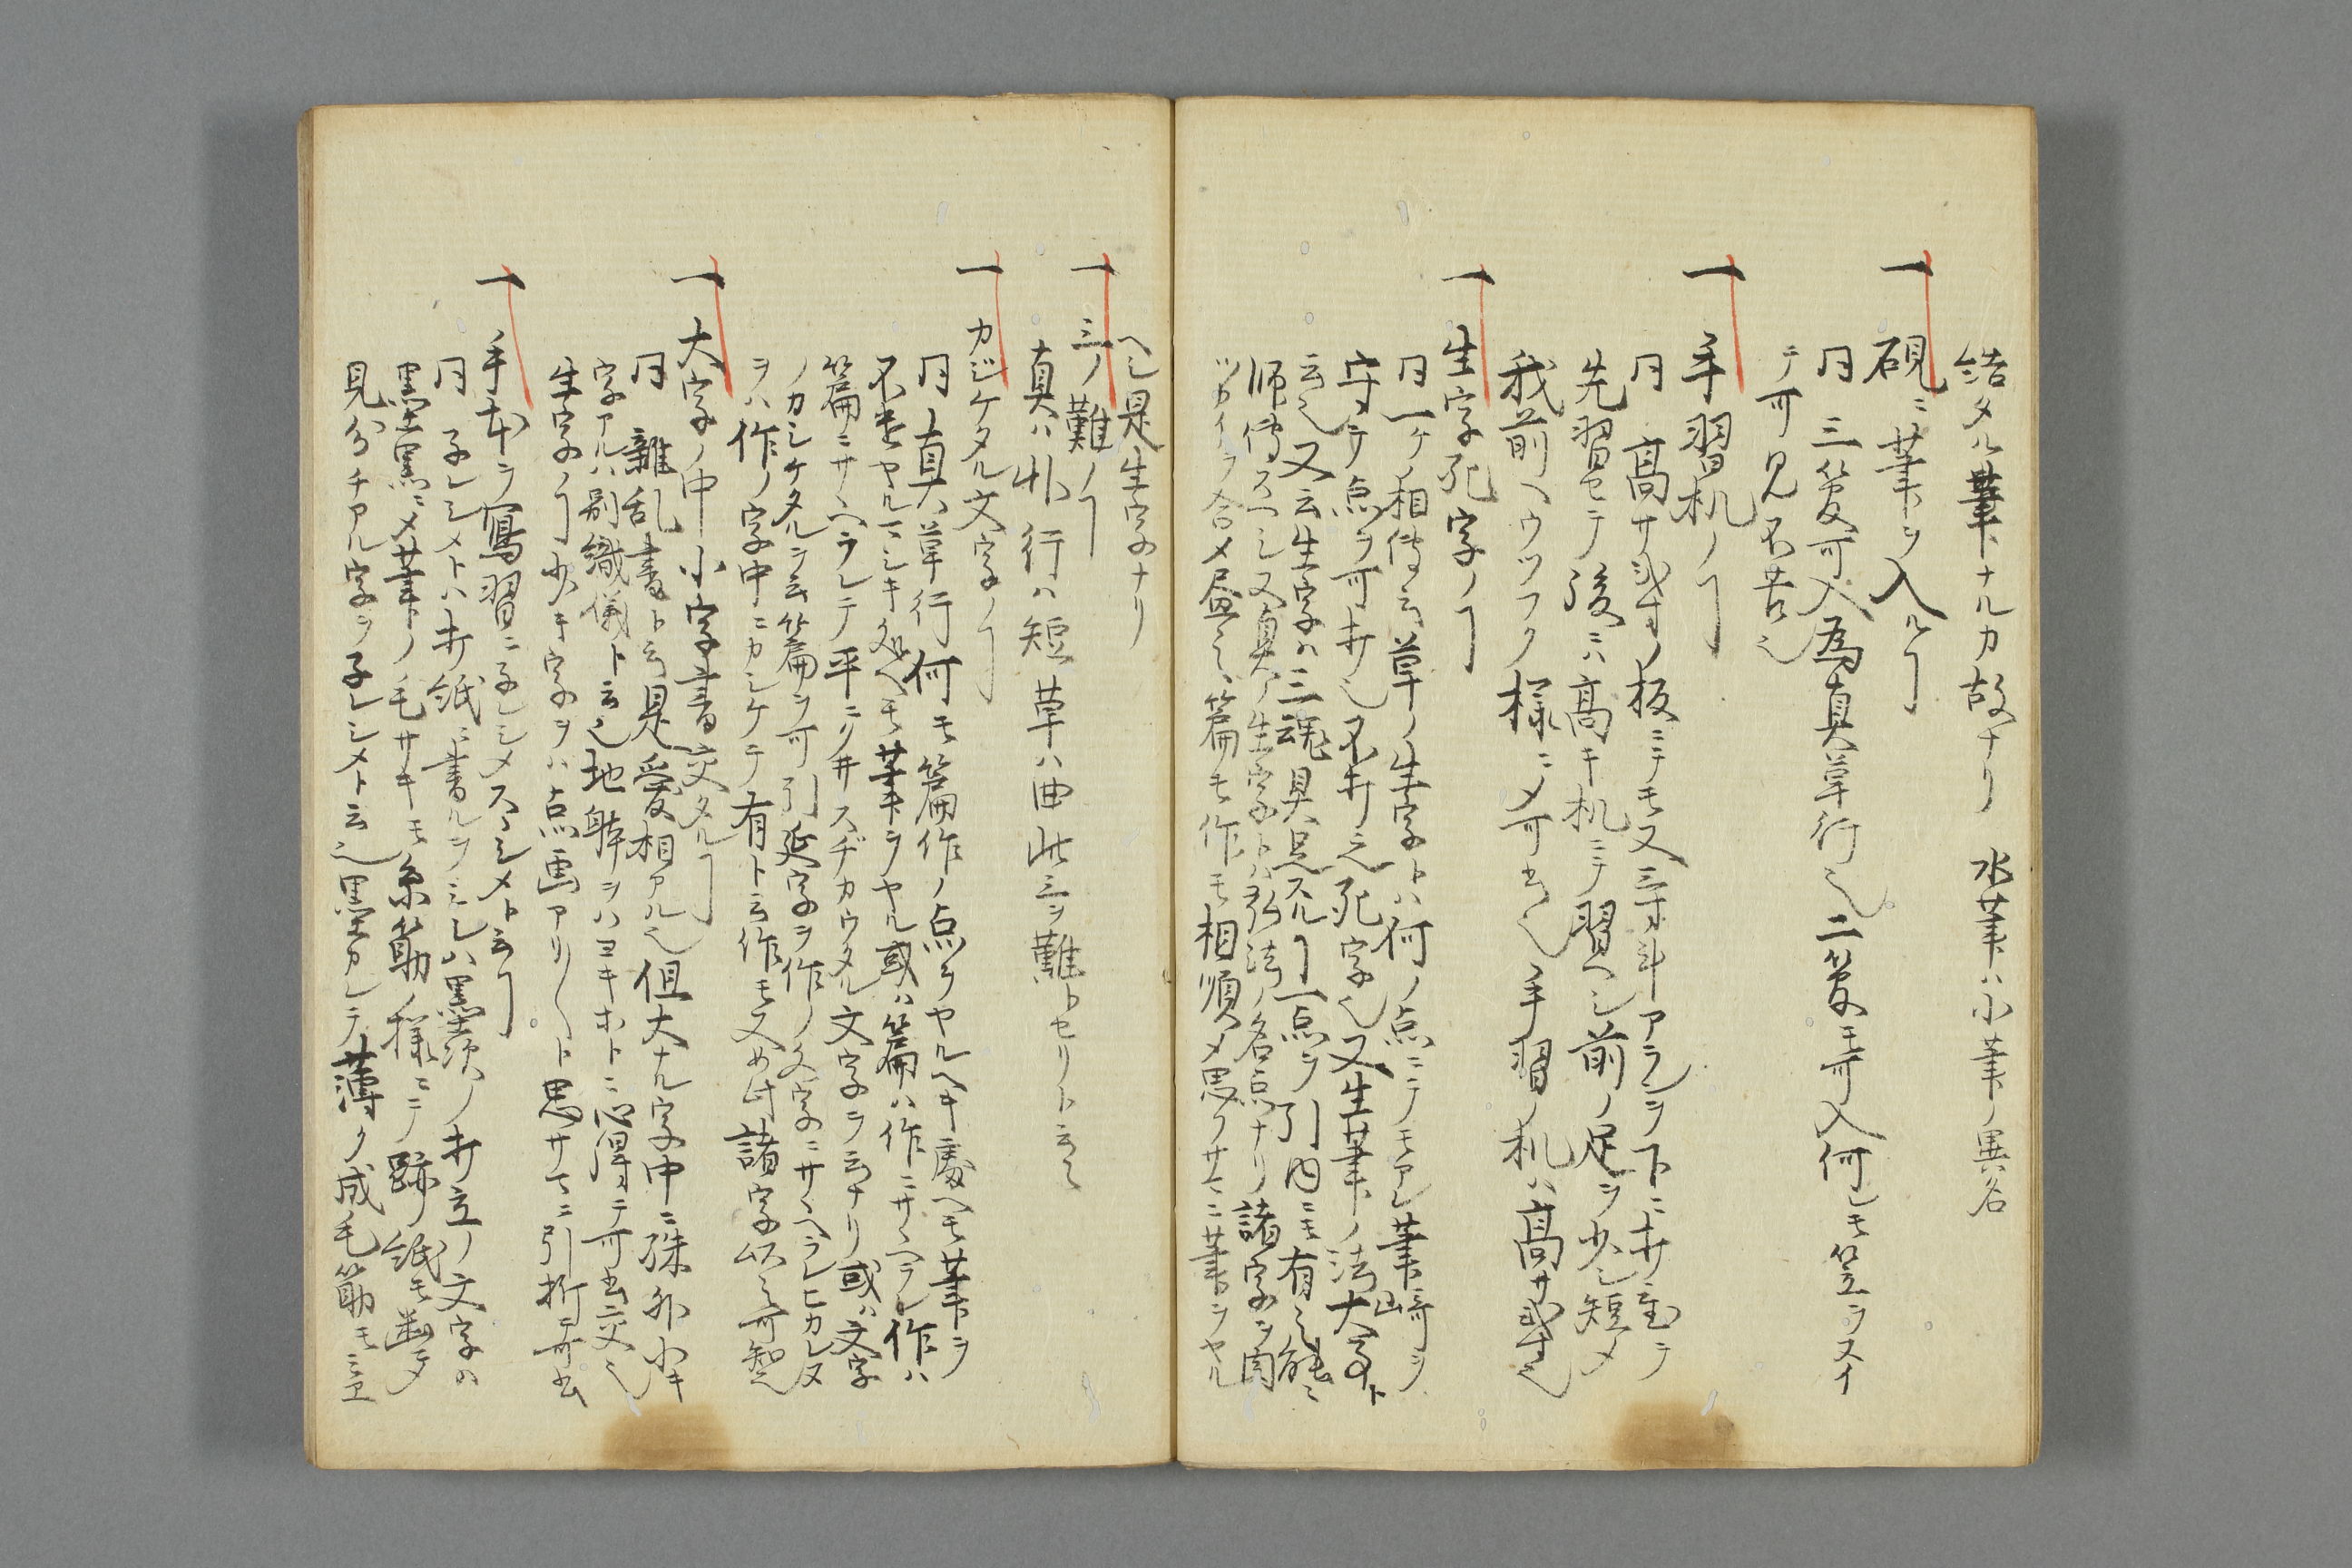 結タル筆ナルカ故ナリ 水筆ハ小筆ノ異名
一 硯ニ筆ヲ入ルヿ
同 三管可入為真草行也 二管モ可入何レモ笠ヲヌイ
テ可見不苦也
一 手習机ノヿ
同 高サ或寸ノ板ニテモ又三寸斗アランヲ下ニ打立テ
先習セテ後ニハ高キ机ニテ習ヘシ前ノ足ヲ少シ短メ
我前ヘウツフク様ニメ可書也手習ノ机ハ高サ或寸也
一 生字死字ノヿ
同一ケノ相傳云草ノ生字トハ何ノ点ニテモアレ筆崎ヲ
守テ点ヲ可打也不打之死字也又生筆ノ法大事ト
云也又云生字ハ三魂具足スルヿ一点ヲ引内ニモ有之能々
師傳スヘシ又真ノ生字トハ弘法ノ名点ナリ諸字ヲ肉
ツカイヲ合メ尽也篇モ作モ相順メ思フサマニ筆ヲヤル
ヘシ是生字ナリ
一 三ノ難ノヿ
真ハ外行ハ短草ハ曲此三ヲ難トセリト云也
一 カジケタル文字ノヿ
同 真草行何モ篇作ノ点ヲヤルヘキ處ヘモ筆ヲ
不遣ヤルマシキ処ヘモ筆ヲヤル或ハ篇ハ作ニサヘラレ作ハ
篇ニサヘラレテ平ニリサスヂカウタル文字ヲ云ナリ或ハ文字
ノカシケタルヲ云篇ヲ可引延字ヲ作ノ文字ニサヘラレヒカレヌ
ヲハ作ノ字中ニカシケテ有ト云作モ又如此諸字以之可知也
一 大字ノ中小字書交タルヿ
同 雜乱書ト云是愛相アル也但大ナル字中ニ殊外小キ
字アルハ別織儀ト云也地躰ヲハヨキホトニ心得テ可書交也
生字ノヿ少キ字ヲハ点画アリ〱ト思サマニ引折可書
一 手本ヲ寫習ニ子レシメスヽシメト云ヿ
同 子レシメトハ打紙ニ書ルヲミレハ黒漬ノ打立ノ文字ハ
墨黒ニメ筆ノ毛サキモ糸筋ノ様ニテ跡紙モ幽メ
見分チアル字ヲ子レシメト云也墨カレテ薄ク成毛筋モ立